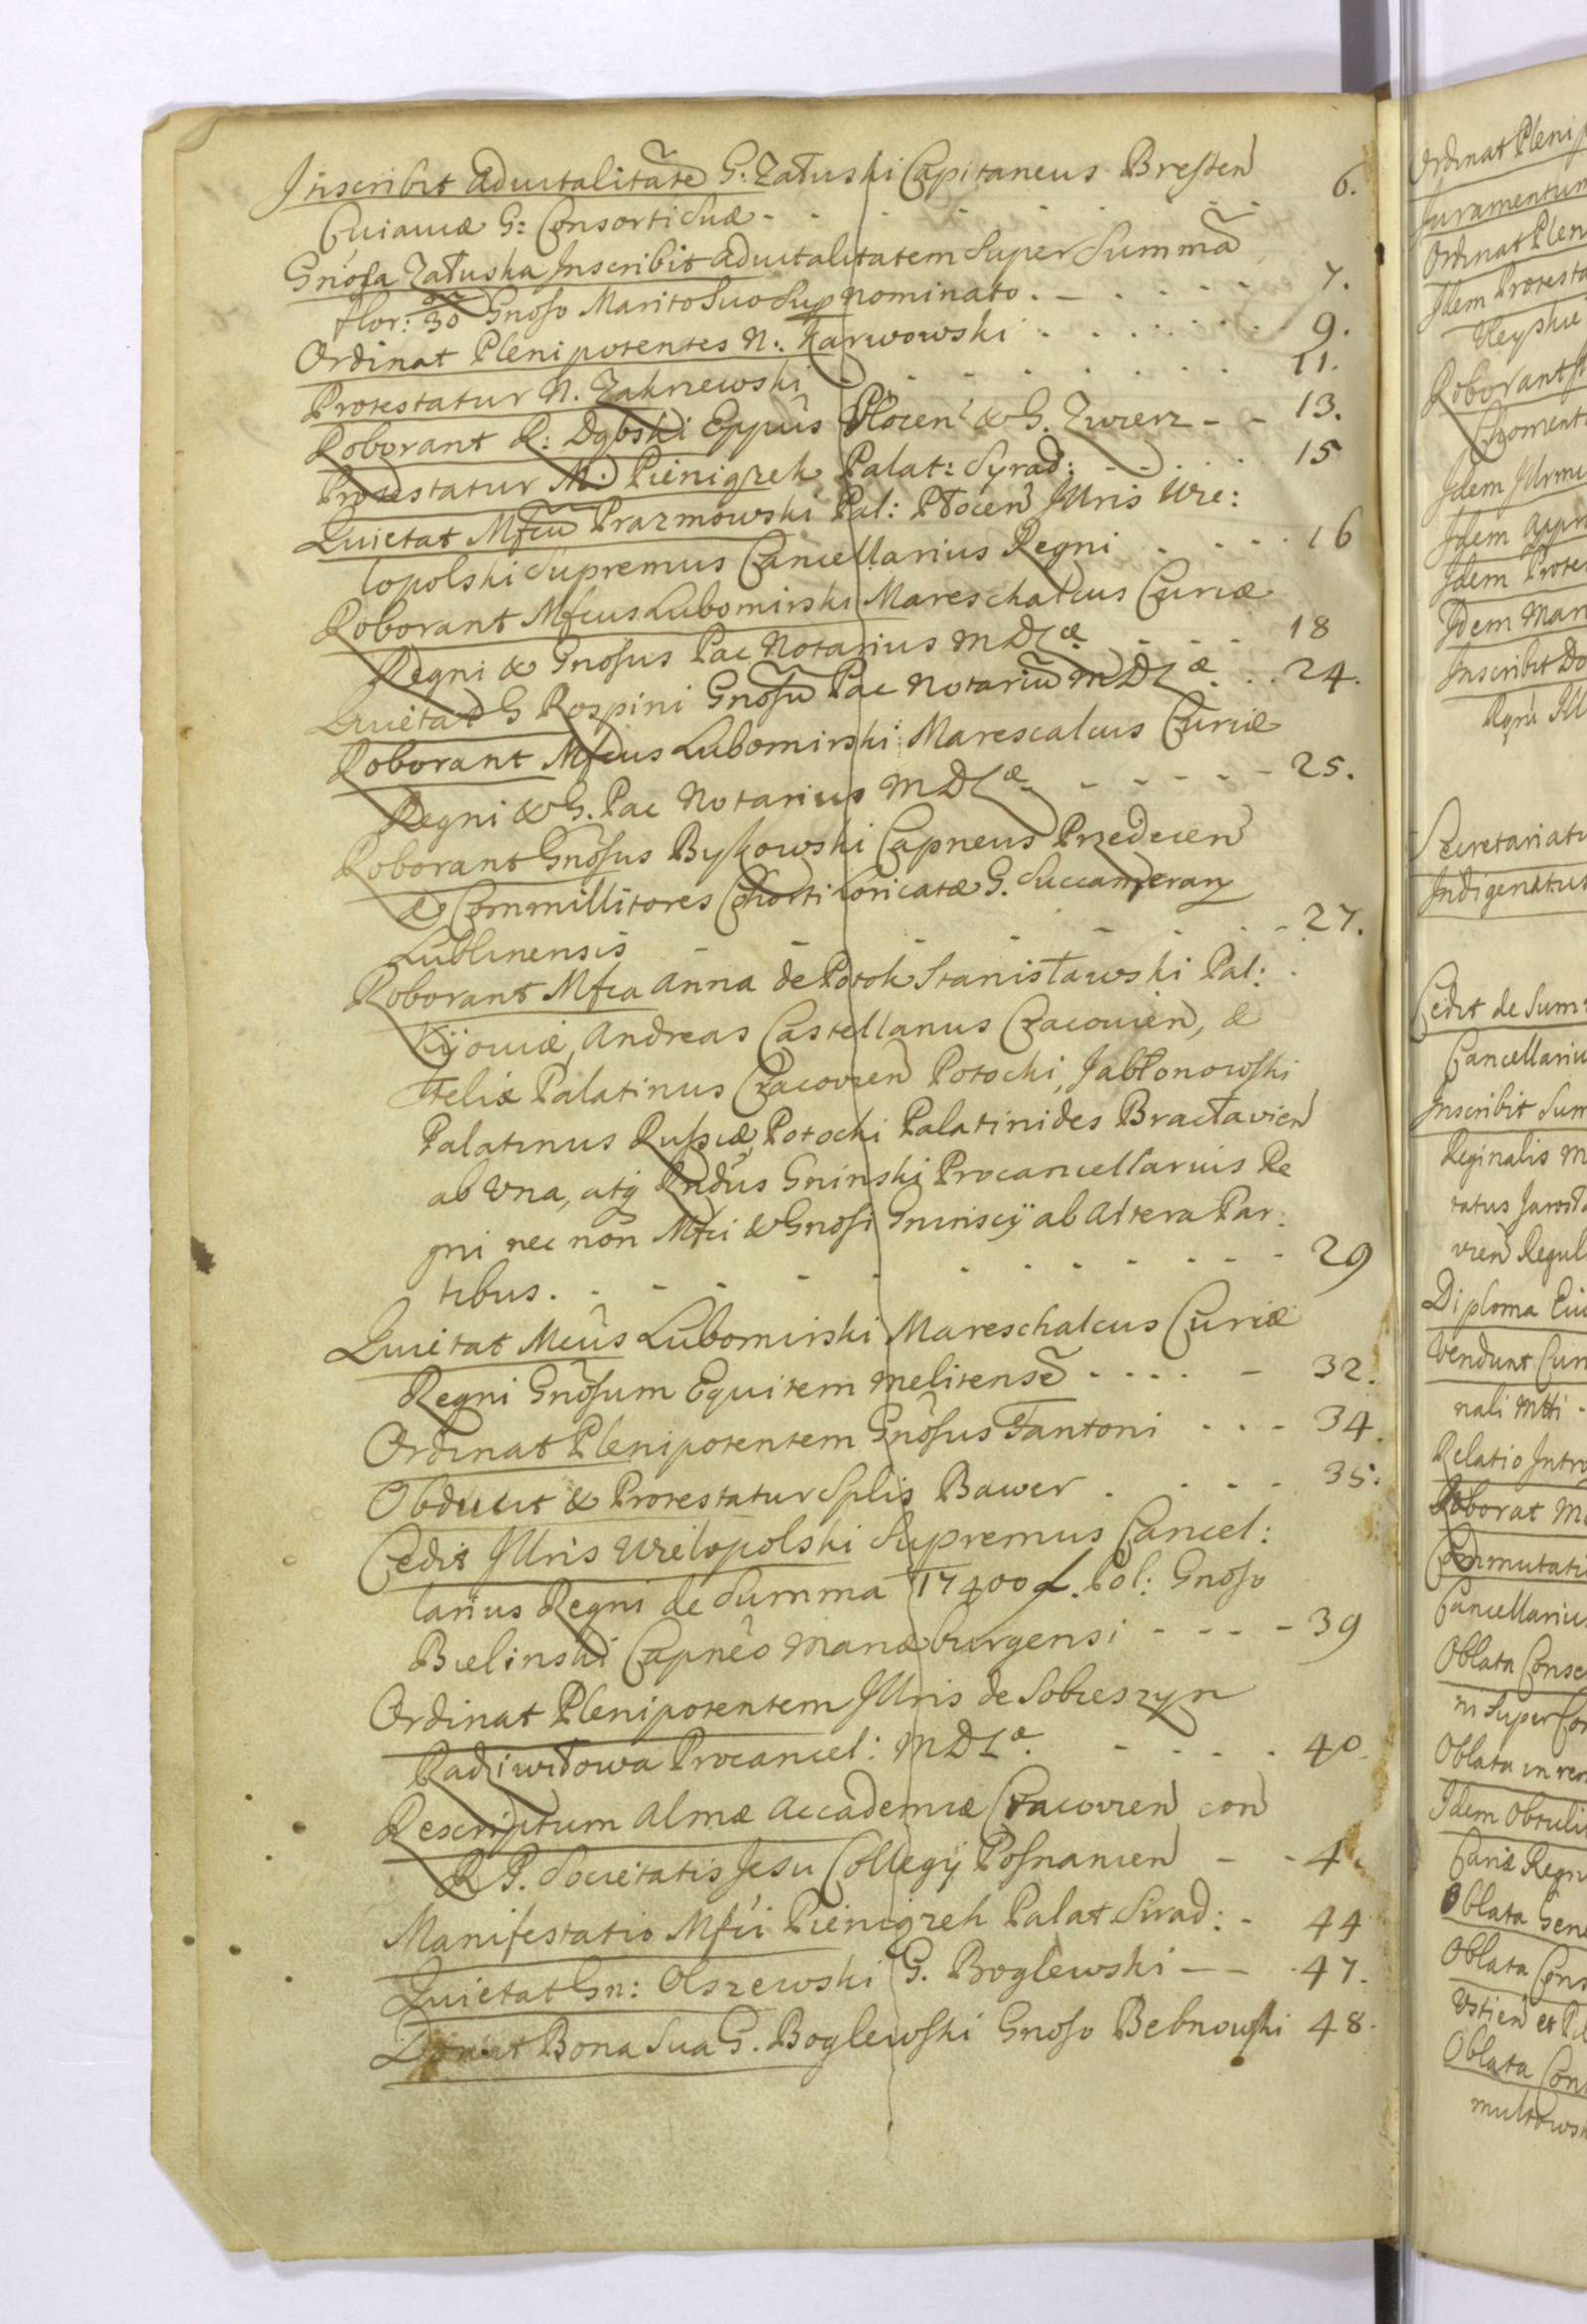 Inscribit aduitalitatẽ G: Załuski Capitaneus Bresten̄
Cuiauiæ G: Consorti Suæ - - - - - - 6.
Gnosa Załuska Inscribit aduitalitatem Super Summã
flor: 30 Gnoso Marito Suo Sup nominato. - - - - - 7.
Ordinat Plenipotentes N: Karwowski - - - - - 9.
Protestatur N. Zakrzewski - - - - - - 11.
Roborant R: Dąbski Eppus Płocen̄ & G. Zwierz - - 13.
Protestatur M: Pieniązek Palat: Syrad: - - - - 15
Quietat Mfcũ Prazmowski Pal: Płocen̄ Illris Wie:
lopolski Supremus Cancellarius Regni - - - - 16
Roborant Mfcus Lubomirski Mareschalcus Curiæ
Regni & Gnosus Pac Notarius M D L æ - - - 18
Quietat G Rospini Gnosũ Pac Notariũ M D L æ - - 24.
Roborant Mfcus Lubomirski Marescalcus Curiæ
Regni & G. Pac Notarius M D L æ - - - - - 25.
Roborant Gnosus Bykowski Capneus Przedecen̄
& Commillitores Cohorti Loricatæ G. Succamerarij
Lublinensis - - - - - - - - 27.
Roborant Mfca Anna de Potok Stanisławski Pal:
Kijouiæ, Andreas Castellanus Cracouien̄, &
Felix Palatinus Cracovien̄ Potocki, Jabłonowski
Palatinus Russiæ, Potocki Palatinides Bracłavien̄
ab Vna, atq Rndus Gninski Procancellarius Re
gni nec non Mfci & Gnosi Gninscij ab Altera Par:
tibus. - - - - - - - - - - 29
Quietat Mcus Lubomirski Mareschalcus Curiæ
Regni Gnosum Equitem Melitensẽ - - - - - 32.
Ordinat Plenipotentem Gnosus Fantoni - - - 34.
Obducit & Protestatur Splis Bawer - - - - 35.
Cedit Illris Wielopolski Supremus Cancel:
larius Regni de Summa 17400 f. Pol: Gnoso
Bielinski Capneo Mariæburgensi - - - - 39
Ordinat Plenipotentem Illris de Sobieszyn
Radziwiłowa Procancel: M D L æ. - - - - 40.
Rescriptum Almæ Accademiæ Cracovien̄ con̄
R P. Societatis Jesu Collegij Posnanien̄ - - 4
Manifestatio Mfci Pieniązek Palat Sirad: - 44
Quietat Gn: Olszewski G. Boglewski - - - 47.
Donat Bona Sua G. Boglewski Gnoso Bebnowski 48.
Ordinat Plenip
Juramentum
Ordinat Plen
Idem Protesta
Roborant
Choment
Idem
Idem
Idem Protes
Idem Man
Inscribit Do
Regni Ill
Secretariatu
Indigenatus
Cedit de Sum
Cancellariu
Inscribit Sum
Reginalis M
vien̄ Regul
Diploma
Vendunt
Relatio Intro
Roborat M
Commutati
Cancellariu
Oblata Conse
ni Super
Oblata in rem
Idem Obtuli
Curiæ Regn
Oblata Gene
Oblata Cons
Oblata Con